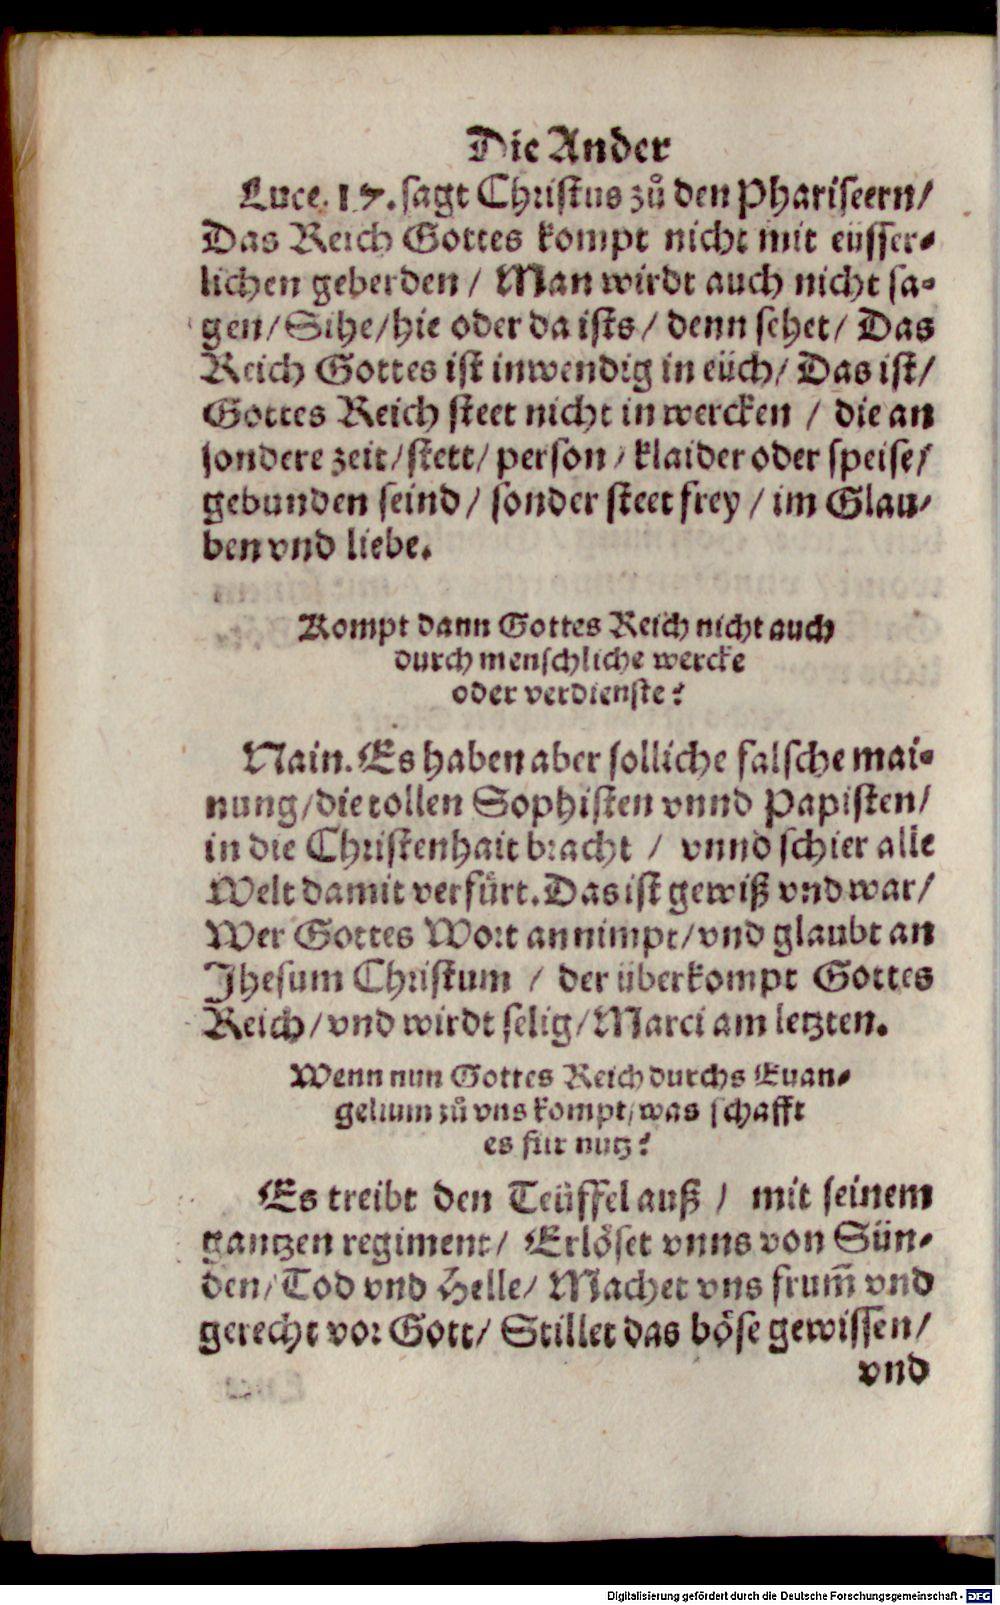 Die Ander
Luce. 17. sagt Christus zů den Phariseern/
Das Reich Gottes kompt nicht mit eüsser-
lichen geberden / Man wirdt auch nicht sa-
gen/ Sihe/ hie oder da ists/ denn sehet/ Das
Reich Gottes ist inwendig in eüch/ Das ist/
Gottes Reich steet nicht in wercken / die an
sondere zeit/ stett/ person/ klaider oder speise/
gebunden seind/ sonder steet frey / im Glau-
ben vnd liebe.
Kompt dann Gottes Reich nicht auch
durch menschliche wercke
oder verdienste?
Nain. Es haben aber solliche falsche mai-
nung/ die tollen Sophisten vnnd Papisten/
in die Christenhait bracht / vnnd schier alle
Welt damit verfürt. Das ist gewiß vnd war/
Wer Gottes Wort annimpt/ vnd glaubt an
Jhesum Christum / der überkompt Gottes
Reich/ vnd wirdt selig/ Marci am letzten.
Wenn nun Gottes Reich durchs Euan-
gelium zů vns kompt/ was schafft
es für nutz?
Es treibt den Teüffel auß / mit seinem
gantzen regiment/ Erlöset vnns von Sün-
den/ Tod vnd Helle/ Machet vns frum̃ vnd
gerecht vor Gott/ Stillet das böse gewissen/
vnd
Digitalisierung gefördert durch die Deutsche Forschungsgemeinschaft - DFG